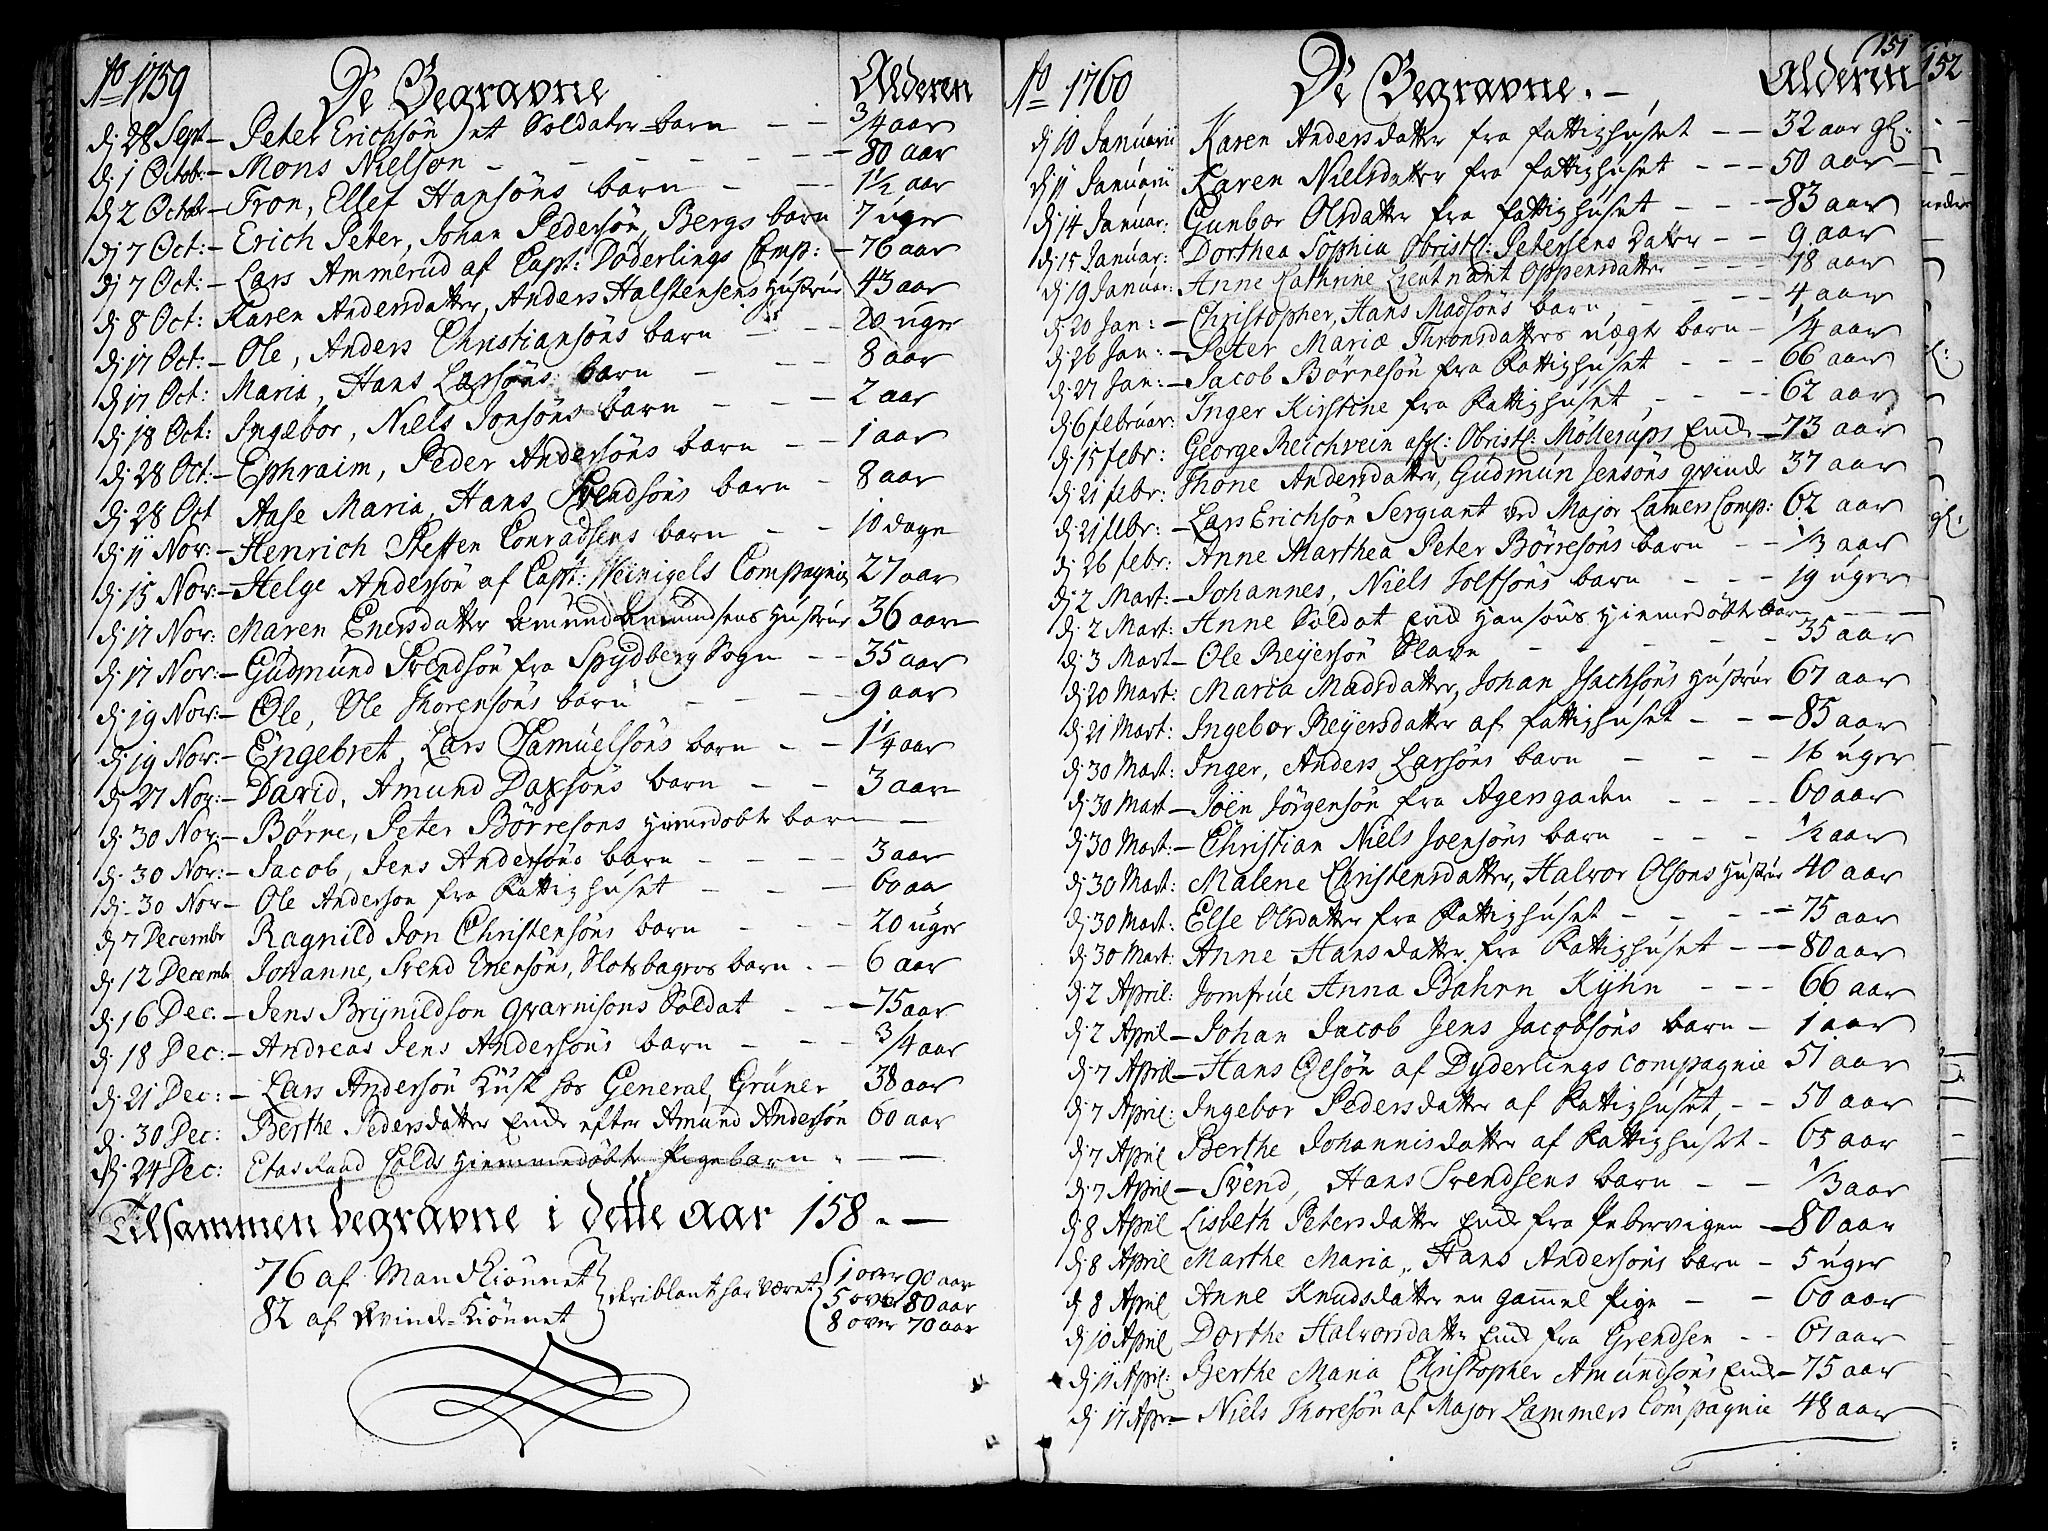 Ao 1759 De Begravne Alderen
d. 28 Sept – Peter Erichsön et Soldater barn – – 3/4 aar
d. 1 Octob: – Mons Nielsøn – – – 80 aar
d. 2 Octob – Tron, Ellef Hansöns barn – – 1½ aar
d. 7 Oct: – Erich Peter, Johan Pedersön, Bergs barn 7 uger
d. 7 Oct: – Lars Ammerud af Capt: Döderlings Comp: – 76 aar
d. 8 Oct: Karen Andersdatter, Anders Halstensens Hustrue 43 aar
d. 17 Oct: – Ole, Anders Christiansöns barn – – 20 uger
d. 17 Oct: Maria, Hans Larsöns barn – – 8 aar
d. 18 Oct: Ingebor, Niels Jonsöns barn – – – 2 aar
d. 28 Oct: – Ephraim, Peder Andersöns barn – – 1 aar
d. 28 Oct Aase Maria, Hans Svendsöns barn – 8 aar
d. 11 Nov: – Henrich Steffen Conradsens barn – – 10 dage
d. 15 Nov: – Helge Andersön af Capt: Weinigels Compagnie 27 aar
d. 17 Nov: Maren Enersdatter Amund Amundsens Hustrue 36 aar
d. 17 Nov: – Gudmund Svendsön fra Spydberg Sogn – – 35 aar
d. 19 Nov: – Ole, Ole Thorensöns barn – – – 9 aar
d. 19 Nov: – Engebret, Lars Samuelsöns barn – – 1¼ aar
d. 27 Nov: – David, Amund Daxsöns barn – – 3 aar
d. 30 Nov: – Børne, Peter Börresons hiemedøbte barn –
d. 30 Nov: – Jacob, Jens Andersöns barn – – – – 3 aar
d. 30 Nov – Ole Anderson fra Fattighuset – – – 60 aar
d. 7 Decembr Ragnild Jon Christensöns barn – – – 20 uger
d. 12 Decembr Johanne, Svend Enensöns, Slotsbagers barn. – 6 aar
d. 16 Dec. – Jens Brynildson Gvarnisons Soldat – – 75 aar
d. 18 Dec: – Andreas Jens Andersöns barn – – – 3/4 aar
d. 21 Dec: – Lars Andersön Kusk hos General Grüner 38 aar
d. 30 Dec: Berthe Pedersdatter Enke efter Amund Andersön 60 aar
d. 24 Dec: Etatsraad Colds hiemmedøbte Pigebarn . – –
Tilsammen begravne i dette aar 158. –
76 af Mandkiönnet
82 af Kvinde-Kiönnet
deriblant har været
1 over 90 aar
5 over 80 aar
8 over 70 aar
151
152
Ao 1760 De Begravne. – Alderen
d. 10 Januarii Karen Andersdatter fra fattighuset – – 32 aar gl:
d. 11 Januarii Karen Nielsdatter fra fattighuset – – – 50 aar –
d. 14 Januar: Gunbor Olsdatter fra fattighuset – – – 83 aar
d. 15 Januar: Dorthea Sophia Obristl: Petersens Datter – – 9 aar
d. 19 Januar: Anne Cathrine Lieutnant Oppensdatter – – – 18 aar
d. 20 Jan: – Christopher, Hans Madsöns barn, – – – 4 aar
d. 26 Jan: – Peter Mariæ Thronsdatters uægte barn – ¼ aar
d. 27 Jan: – Jacob Børnesön fra Fattighuset – – – 66 aar
d. 6 februar: Inger Kirstine fra Fattighuset – – – 62 aar
d. 15 febr: George Reichvein afgl: Obristl: Möllerups Enke – 73 aar
d. 21 febr: Thone Andersdatter, Gudmun Jensöns qvinde 37 aar
d. 21 febr: – Lars Erichsön Sergiant ved Major Lamers Comp: 62 aar
d. 26 febr: Anne Marthea Peter Börresöns barn – – 1/3 aar
d. 2 Mart: – Johannes, Niels Tolfsöns barn – – – 19 uger
d. 2 Mart: Anne Soldat Erid Hansöns hiemedöbte barn – – –
d. 3 Mart – Ole Reyersön Slave – – – 35 aar
d. 20 Mart: Maria Madsdatter, Johan Jsachsöns Hustrue 67 aar
d. 21 Mart: Ingebor Reyersdatter af fattighuset – – – 85 aar
d. 30 Mart: Inger, Anders Larsöns barn – – – 16 uger
d. 30 Mart – Joen Jörgensön fra Agersgaden – – – – 60 aar
d. 30 Mart: – Christian Niels Joensöns barn – – – ½ aar
d. 30 Mart: Malene Christensdatter, Halvor Olsons Hustrue 40 aar
d. 30 Mart: Else Olsdatter fra Fattighuset – – – – 75 aar
d. 30 Mart: Anne Hansdatter fra Fattighuset – – 80 aar
d. 2 April: Jomfrue Anna Bahrn Kyhn – – – 66 aar
d. 2 April – Johan Jacob Jens Jacobsöns barn – 1 aar
d. 7 April – Hans Olsön af Dyderlings compagnie 51 aar
d. 7 April: Ingebor Pedersdatter af Fattighuset, – – 50 aar
d. 7 April Berthe Johannisdatter af Fattighuset – 65 aar
d. 7 April – Svend, Hans Svendsens barn – – 1/3 aar
d. 8 April Lisbeth Petersdatter Enke fra Pebervigen – 80 aar
d. 8 April Marthe Maria, Hans Andersöns barn – 5 uger
d. 8 April Anne Knudsdatter en gammel Pige – – 60 aar
d. 10 April Dorthe Halvorsdatter Enke fra Grendsen – – 67 aar
d. 11 April: Berthe Maria Christopher Amundsöns Enke – 75 aar
d. 17 Apr – Niels Thoresön af Major Lammers Compagnie 48 aar